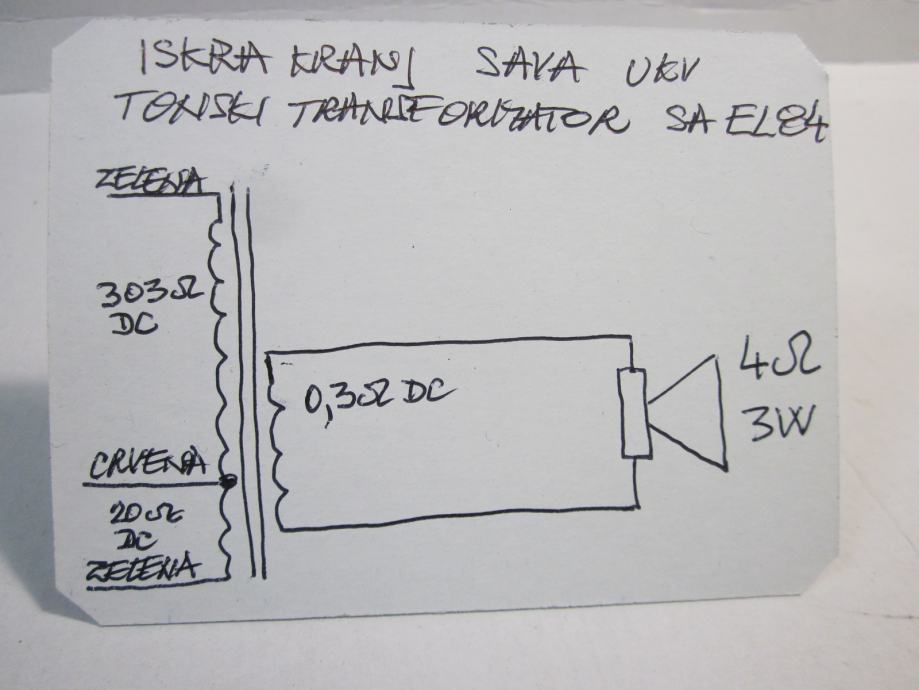 ISKRA KRANJ SAVA UKV
TONSKI TRANSFORMATOR SA EL84
ZELENA
303Ω
DC
0,3Ω DC
4Ω
3W
CRVENA
20Ω
DC
ZELENA